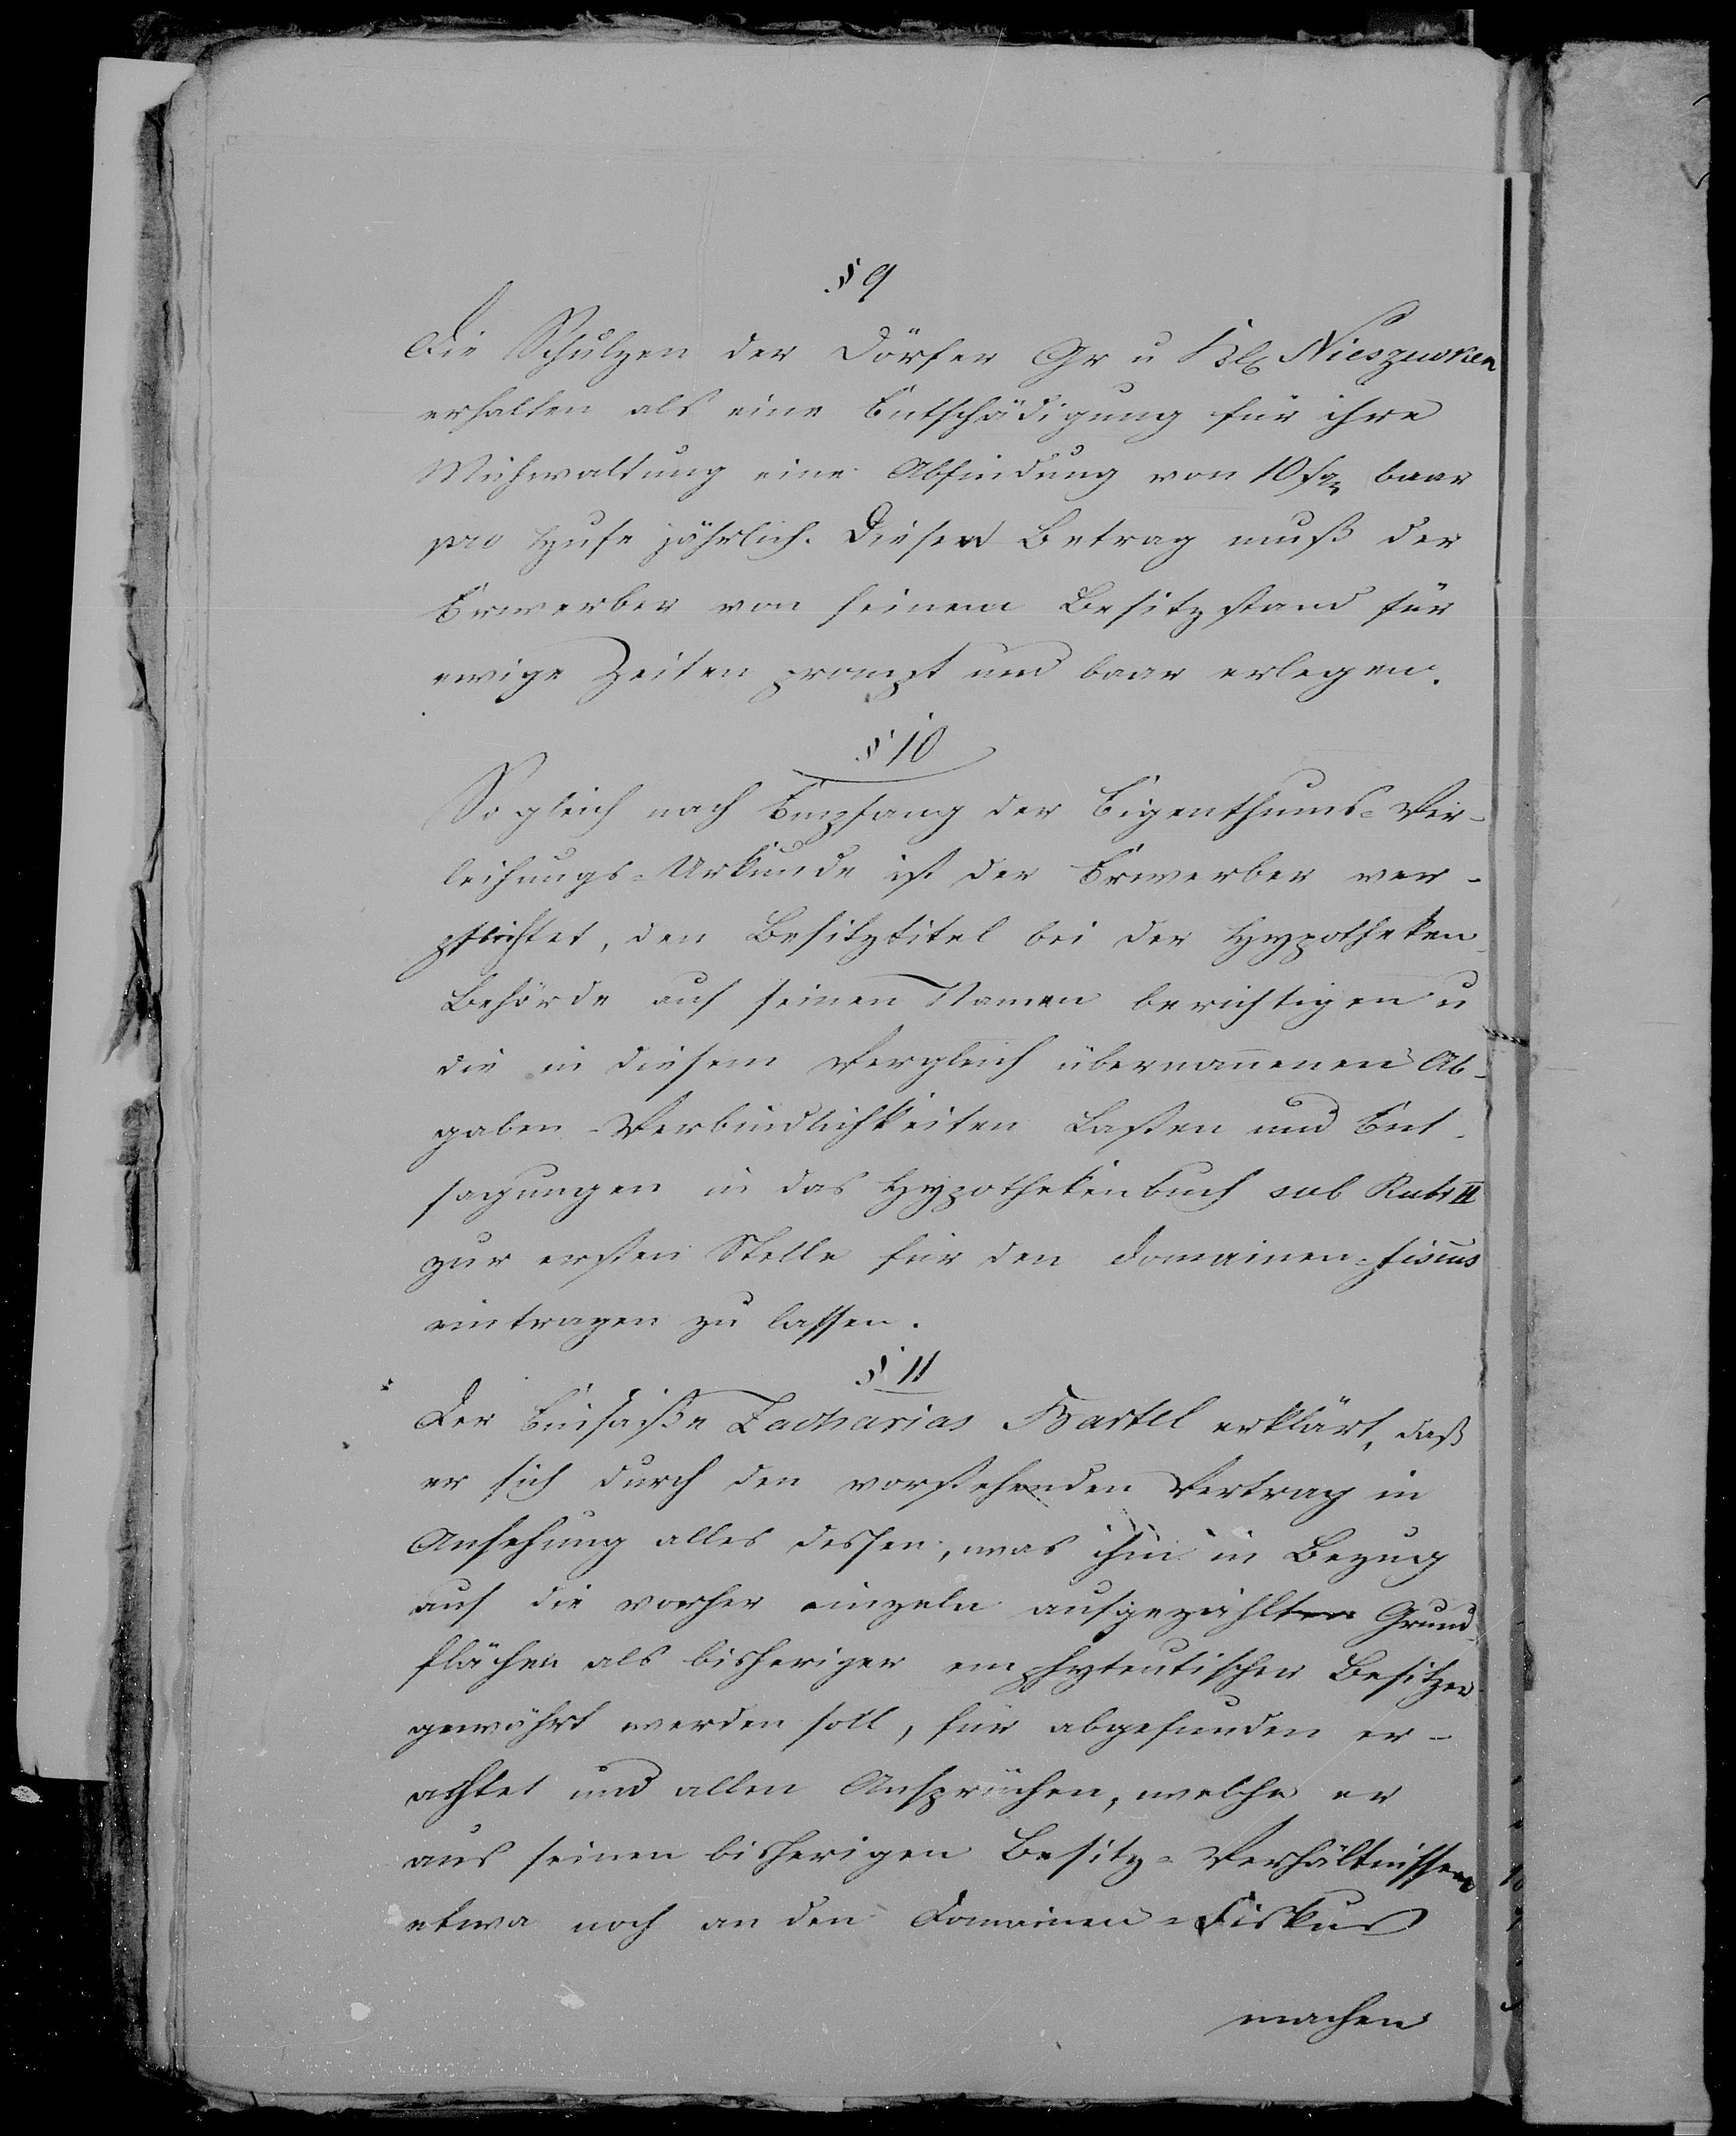 § 9
Die Schulzen der Dörfer Gr u Kl Nieszewken
erhalten als eine Entschädigung für ihre
Mühwaltung eine Abfindung von 10 sgr baar
pro Hufe jährlich. Diesen Betrag muß der
Erwerber von seinem Besitzstand für
ewige Zeiten prompt und baar erlegen.
§ 10
So gleich nach Empfang der Eigenthums-Ver-
leihungs-Urkunde ist der Erwerber ver-
pflichtet, den Besitztitel bei der Hypotheken-
Behörde auf seinen Namen berichtigen u
die in diesem Vergleich übernommenen Ab-
gaben-Verbindlichkeiten Lasten und Ent-
sagungen in das Hypothekenbuch sub Rubr II
zur ersten Stelle für den Domainen-fiscus
eintragen zu lassen.
§ 11
Der Einsaße Zacharias Bartel erklärt, daß
er sich durch den vorstehenden Vertrag in
Ansehung alles dessen, was ihm in Bezug
auf die vorher einzeln aufgezählten Grund-
flächen als bisheriger emphyteutischer Besitzer
gewährt werden soll, für abgefunden er-
achtet und allen Ansprüchen, welche er
aus seinen bisherigen Besitz-Verhältnissen
etwa noch an den Domainen-Fiskus
machen